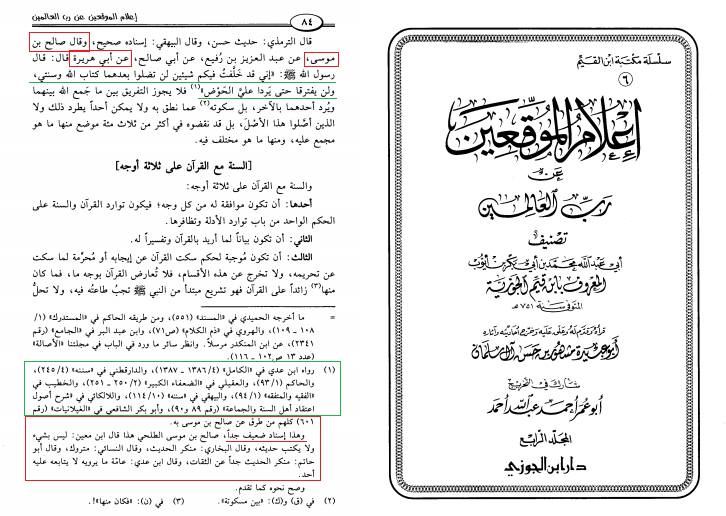 إعلام الموقعين عن رب العالمين
٨٤
قال الترمذي: حديث حسن، وقال البيهقي: إسناده صحيح، وقال صالح بن
موسى، عن عبد العزيز بن رُفيع، عن أبي صالح، عن أبي هريرة قال: قال
رسول الله ﷺ: «إني قد خَلَّفتُ فيكم شيئين لن تضلوا بعدهما كتاب الله وسنتي،
ولن يفترقا حتى يَرِدا عليَّ الحَوْض»(١) فلا يجوز التفريق بين ما جَمع الله بينهما
ويُرد أحدهما بالآخر، بل سكوته(٢) عما نطق به ولا يمكن أحداً يطرد ذلك ولا
الذين أصَّلوا هذا الأصْلَ، بل قد نقضوه في أكثر من ثلاث مئة موضع منها ما هو
مجمع عليه، ومنها ما هو مختلف فيه.
[السنة مع القرآن على ثلاثة أوجه]
والسنة مع القرآن على ثلاثة أوجه:
أحدها: أن تكون موافقة له من كل وجه؛ فيكون توارد القرآن والسنة على
الحكم الواحد من باب توارد الأدلة وتظافرها.
الثاني: أن تكون بياناً لما أريد بالقرآن وتفسيراً له.
الثالث: أن تكون مُوجبة لحكم سكت القرآن عن إيجابه أو مُحرِّمة لما سكت
عن تحريمه، ولا تخرج عن هذه الأقسام، فلا تُعارض القرآن بوجه ما، فما كان
منها(٣) زائداً على القرآن فهو تشريع مبتدأ من النبي ﷺ تجبُ طاعتُه فيه، ولا تحلُّ
= ما أخرجه الحميدي في «المسند» (٥٥١)، ومن طريقه الحاكم في «المستدرك» (١/
١٠٨ - ١٠٩)، والهروي في «ذم الكلام» (ص٧١)، وابن عبد البر في «الجامع» (رقم
٢٣٤١)، عن ابن المنكدر مرسلاً. وانظر سائر ما ورد في الباب في مجلتنا «الأصالة»
(عدد ١٣ ص١٠٢ - ١١٦).
(١) رواه ابن عدي في «الكامل» (٤/ ١٣٨٦ - ١٣٨٧)، والدارقطني في «سننه» (٤/ ٢٤٥)،
والحاكم (١/ ٩٣)، والعقيلي في «الضعفاء الكبير» (٢/ ٢٥٠ - ٢٥١)، والخطيب في
«الفقيه والمتفقه» (١/ ٩٤)، والبيهقي في «سننه» (١٠/ ١١٤)، واللالكائي في «شرح أصول
اعتقاد أهل السنة والجماعة» (رقم ٨٩ و٩٠)، وأبو بكر الشافعي في «الغيلانيات» (رقم
٦٠١) كلهم من طرق عن صالح بن موسى به.
وهذا إسناد ضعيف جداً، صالح بن موسى الطلحي هذا قال ابن معين: ليس بشيء
ولا يكتب حديثه، وقال البخاري: منكر الحديث، وقال النسائي: متروك، وقال أبو
حاتم: منكر الحديث جداً عن الثقات، وقال ابن عدي: عامّة ما يرويه لا يتابعه عليه
أحد.
وصح نحوه كما تقدم.
(٢) في (ق) و(ك): «بين مسكوتة». (٣) في (ن): «فكان منها»!.
سلسلة مكتبة ابن القيم
٦
إعلام الموقعين
عن
رب العالمين
تصنيف
أبي عبد الله محمد بن أبي بكر بن أيوب
المعروف بابن قيم الجوزية
المتوفى سنة ٧٥١ هـ
قرأه وقدم له وعلق عليه وخرج أحاديثه وآثاره
أبو عبيدة مشهور بن حسن آل سلمان
شارك في التخريج
أبو عمر أحمد عبد الله أحمد
المجلد الرابع
دار ابن الجوزي